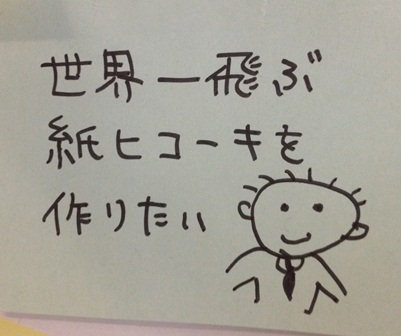 世界一飛ぶ
紙ヒコーキを
作りたい